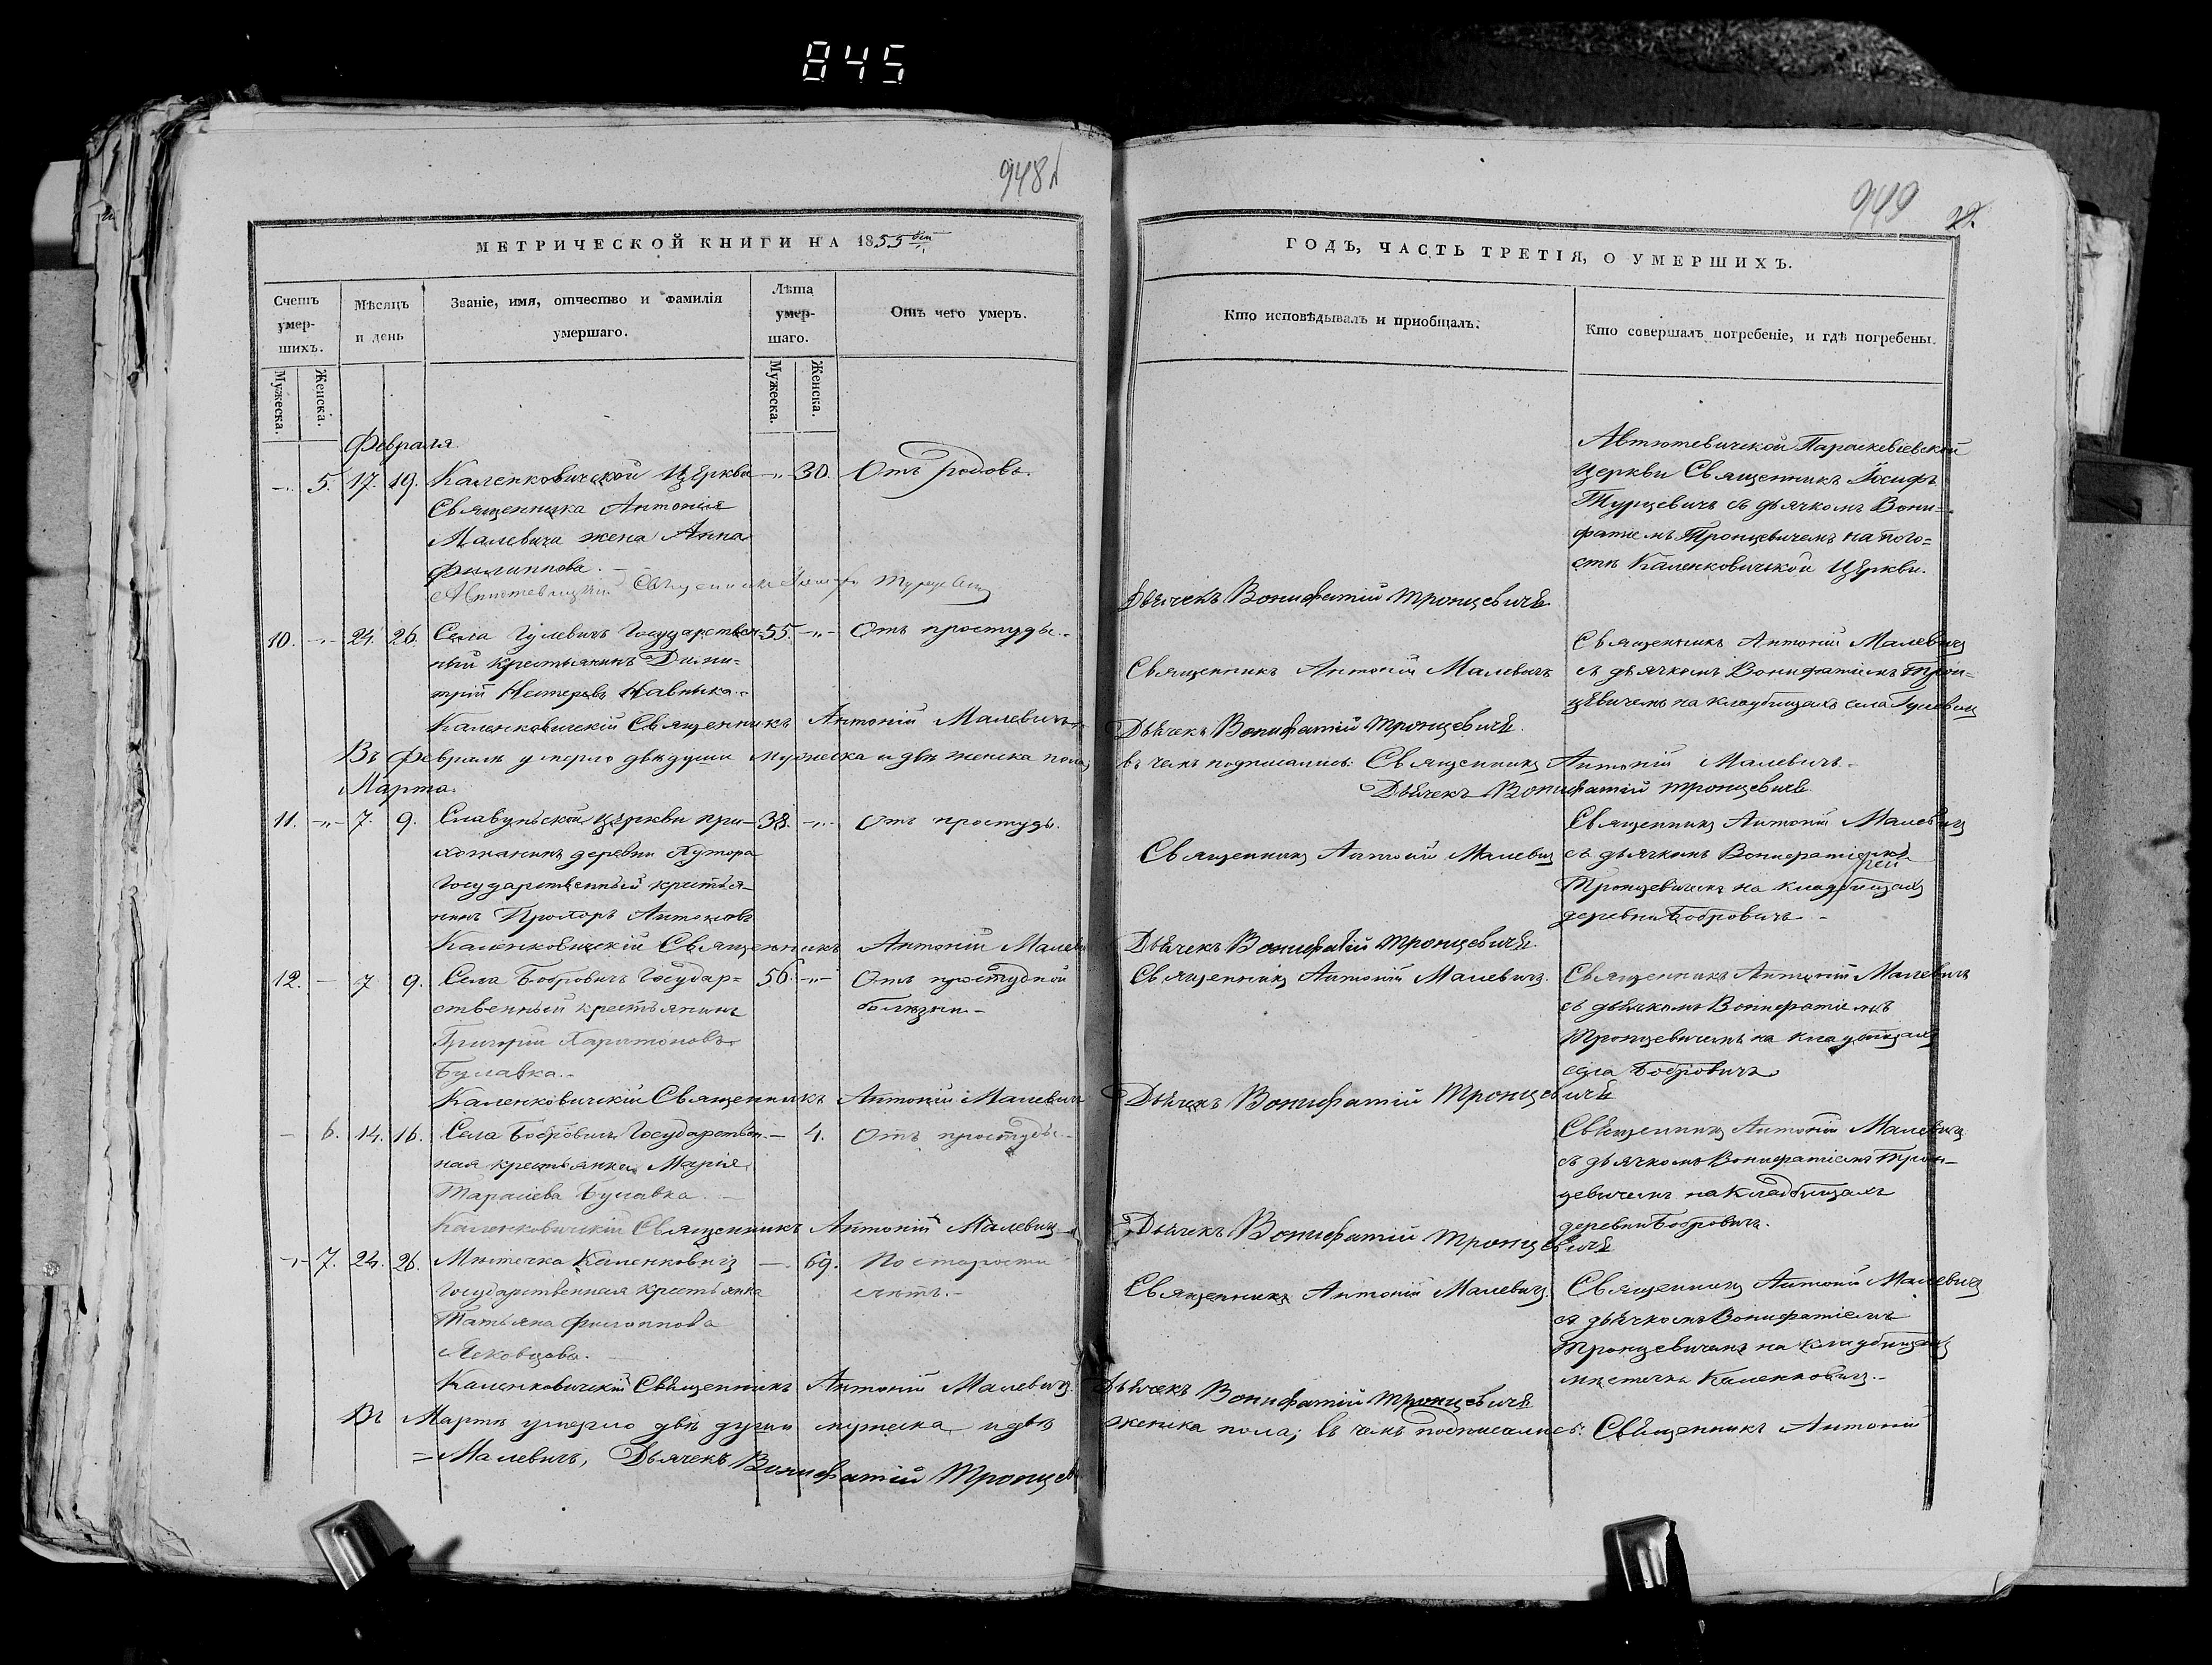 845
948
949
22.
МЕТРИЧЕСКОЙ КНИГИ НА 1855 ый
ГОДЪ, ЧАСТЬ ТРЕТІЯ, О УМЕРШИХЪ.
Счетъ умер-шихъ.
Мужеска.
Женска.
Мѣсяцъ и день
Званіе, имя, отчество и фамилія умершаго.
Лѣта умер-шаго.
Мужеска.
Женска.
Отъ чего умеръ.
Кто исповѣдывалъ и приобщалъ.
Кто совершалъ погребеніе, и гдѣ погребены.
Февраля
-"- 5. 17. 19. Каленковичской Церкви -"- 30. Отъ родовъ.
Священника Антонія
Малевича жена Анна
Филиппова. -
Священникъ Іосифъ Турцевичъ
Дьячекъ Вонифатій Тронцевичъ
Автютевичской Параскевіевской
Церкви Священникъ Іосифъ
Турцевичъ съ дьячкомъ Вони=
фатіемъ Тронцевичемъ на пого=
стѣ Каленковичской Церкви.
10. -"- 24. 26. Села Гулевичъ Государствен- 55. -"- Отъ простуды.
ный крестьянинъ Дими=
трій Нестеровъ Навныка.
Каленковичскій Священникъ Антоній Малевичъ
Священникъ Антоній Малевичъ
Дьячекъ Вонифатій Тронцевичъ.
Священникъ Антоній Малевичъ
съ дьячкомъ Вонифатіемъ Трон=
цевичемъ на кладбищахъ села Гулевичъ
Въ Февралѣ умерло двѣ души мужеска и двѣ женска пола,
въ чемъ подписались: Священникъ Антоній Малевичъ.
Дьячекъ Вонифатій Тронцевичъ
Марта.
11. -"- 7. 9. Славунской церкви при- 38. -"- Отъ простуды.
хожанинъ деревни Хутора
Государственный крестья-
нинъ Прохоръ Антоновъ
Каленковичскій Священникъ Антоній Малеви
Священникъ Антоній Малевичъ
Дьячекъ Вонифатій Тронцевичъ.
Священникъ Антоній Малевичъ
съ дьячкомъ Вонифатіемъ
Тронцевичемъ на кладбищахъ
деревни Бобровичъ. -
12. - 7 9. Села Бобровичъ Государ= 56. -"- Отъ простудной
ственный крестьянинъ болѣзни. -
Григорій Харитоновъ
Булавка. -
Каленковичскій Священникъ Антоній Малевичъ
Священникъ Антоній Малевичъ.
Дьячекъ Вонифатій Тронцевичъ
Священникъ Антоній Малевичъ
съ дьячкомъ Вонифатіемъ
Тронцевичемъ на кладбищахъ
села Бобровичъ.
- 6. 14. 16. Села Бобровичъ Государствен- - 4. Отъ простуды. -
ная крестьянка Марія
Тарасіева Булавка. -
Каленковичскій Священникъ Антоній Малевичъ
Дьячекъ Вонифатій Тронцевичъ
Священникъ Антоній Малевичъ
съ дьячкомъ Вонифатіемъ Трон-
цевичемъ на кладбищахъ
деревни Бобровичъ.
-"- 7. 24. 26. Мѣстечка Каленковичъ - 69. По старости
Государственная крестьянка лѣтъ. -
Татьяна Филиппова
Яковцова. -
Каленковичскій Священникъ Антоній Малевичъ.
Священникъ Антоній Малевичъ.
Дьячекъ Вонифатій Тронцевичъ
Священникъ Антоній Малевичъ
съ дьячкомъ Вонифатіемъ
Тронцевичемъ на кладбищахъ
мѣстечка Каленковичъ. -
Въ Мартѣ умерло двѣ души мужеска и двѣ
женска пола; въ чемъ подписались: Священникъ Антоній
= Малевичъ, Дьячекъ Вонифатій Тронцев